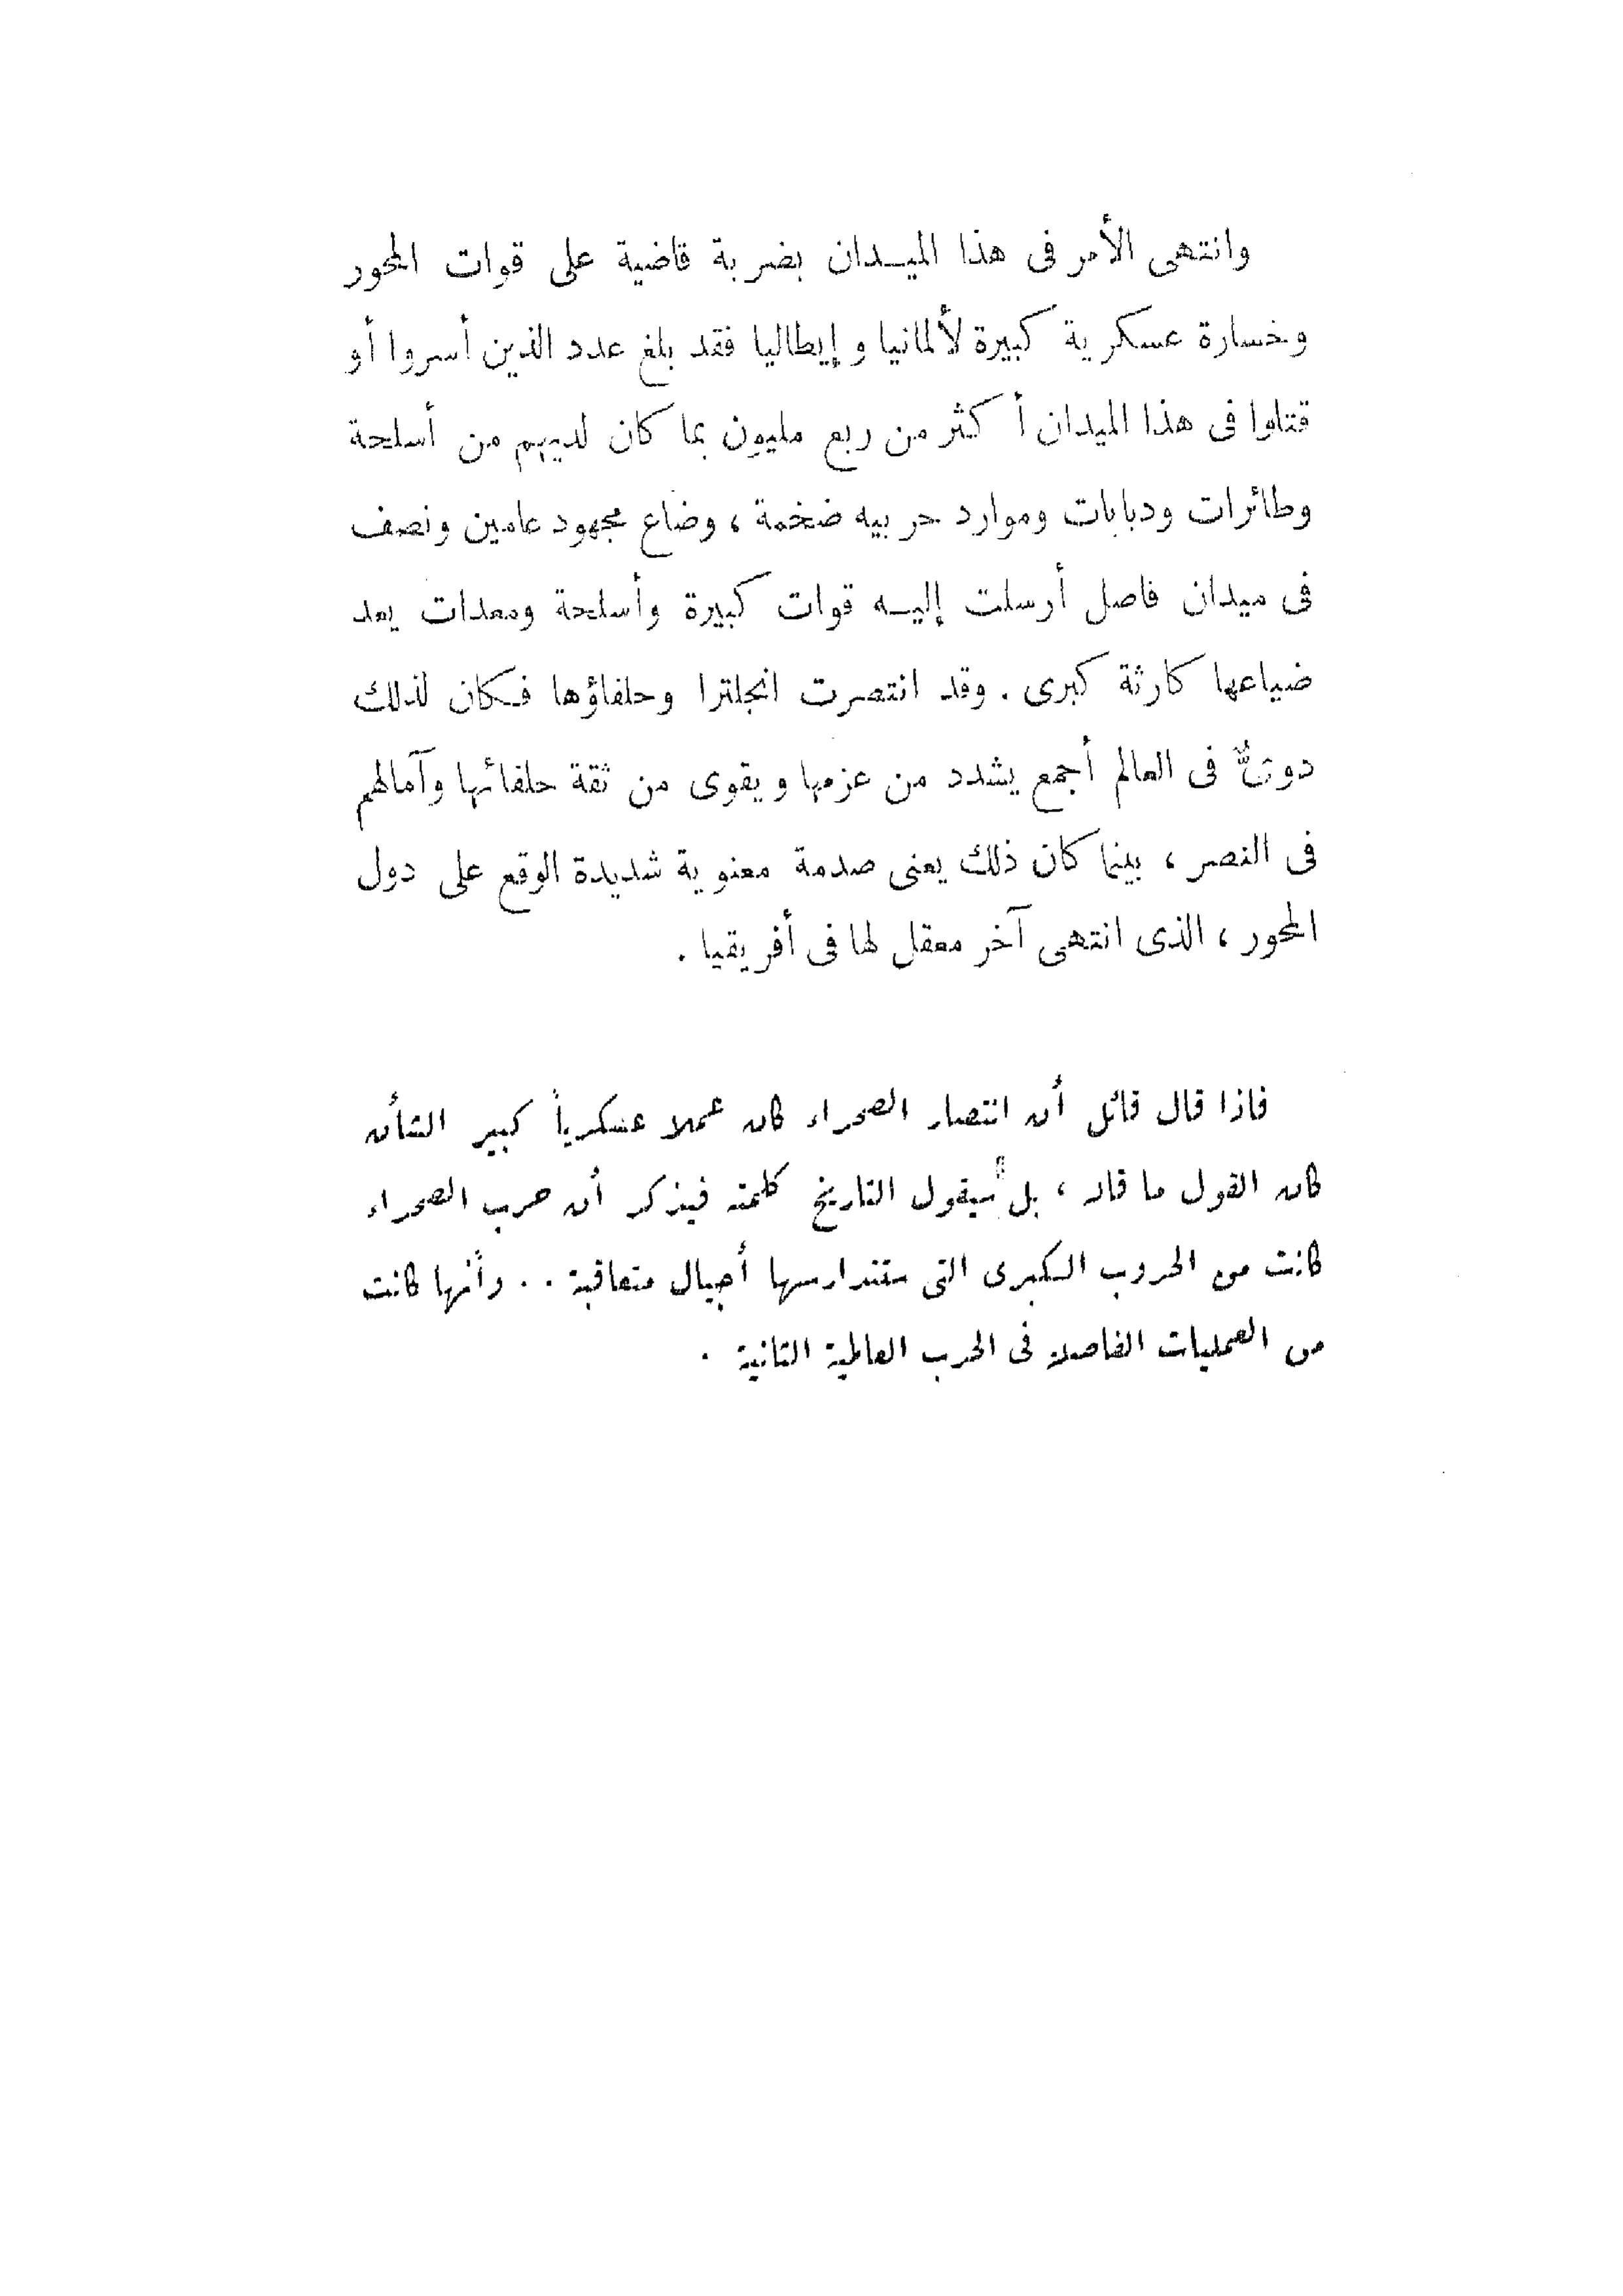 وانتهى الأمر فى هذا الميـدان بضربة قاضية على قوات المحور
وخسارة عسكرية كبيرة لألمانيا وإيطاليا فقد بلغ عدد الذين أسروا أو
قتلوا فى هذا الميدان أكثر من ربع مليون بما كان لديهم من أسلحة
وطائرات ودبابات وموارد حربيه ضخمة ، وضاع مجهود عامين ونصف
فى ميدان فاصل أرسلت إليـه قوات كبيرة وأسلحة ومعدات يعد
ضياعها كارثة كبرى . وقد انتصرت انجلترا وحلفاؤها فـكان لذلك
دوىٌّ فى العالم أجمع يشدد من عزمها ويقوى من ثقة حلفائها وآمالهم
فى النصر ، بينما كان ذلك يعنى صدمة معنوية شديدة الوقع على دول
المحور ، الذى انتهى آخر معقل لها فى أفريقيا .
فاذا قال قائل أن انتصار الصحراء كان عملا عسكرياً كبير الشأن
كان القول ما قال ، بل سيقول التاريخ كلمته فيذكر أن حرب الصحراء
كانت من الحروب الـكبرى التى ستتدارسها أجيال متعاقبة . . وأنها كانت
من العمليات الفاصلة فى الحرب العالمية الثانية .